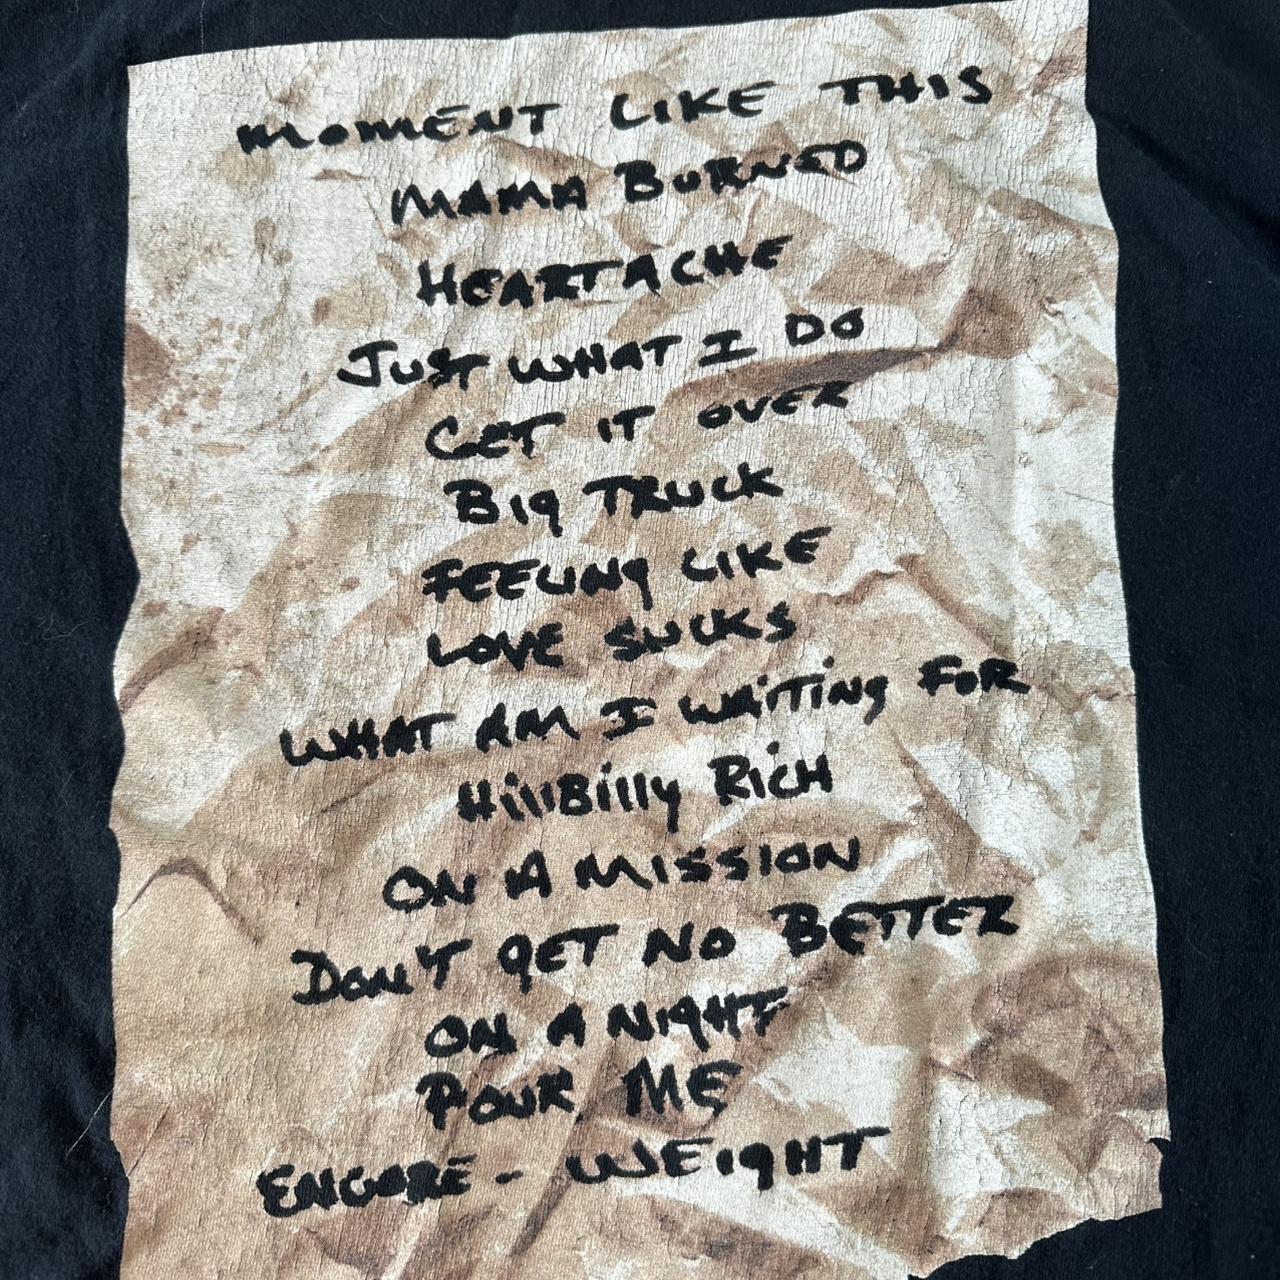 MOMENT LIKE THIS
MAMA BURNED
HEARTACHE
JUST WHAT I DO
GET IT OVER
Big TRUCK
FEELINg LIKE
LOVE SUCKS
WHAT AM I WAiTiNg FOR
HillBilly RicH
ON A MISSION
DON'T gET NO BETTER
ON A NigHT
POUR ME
ENCORE - WEigHT